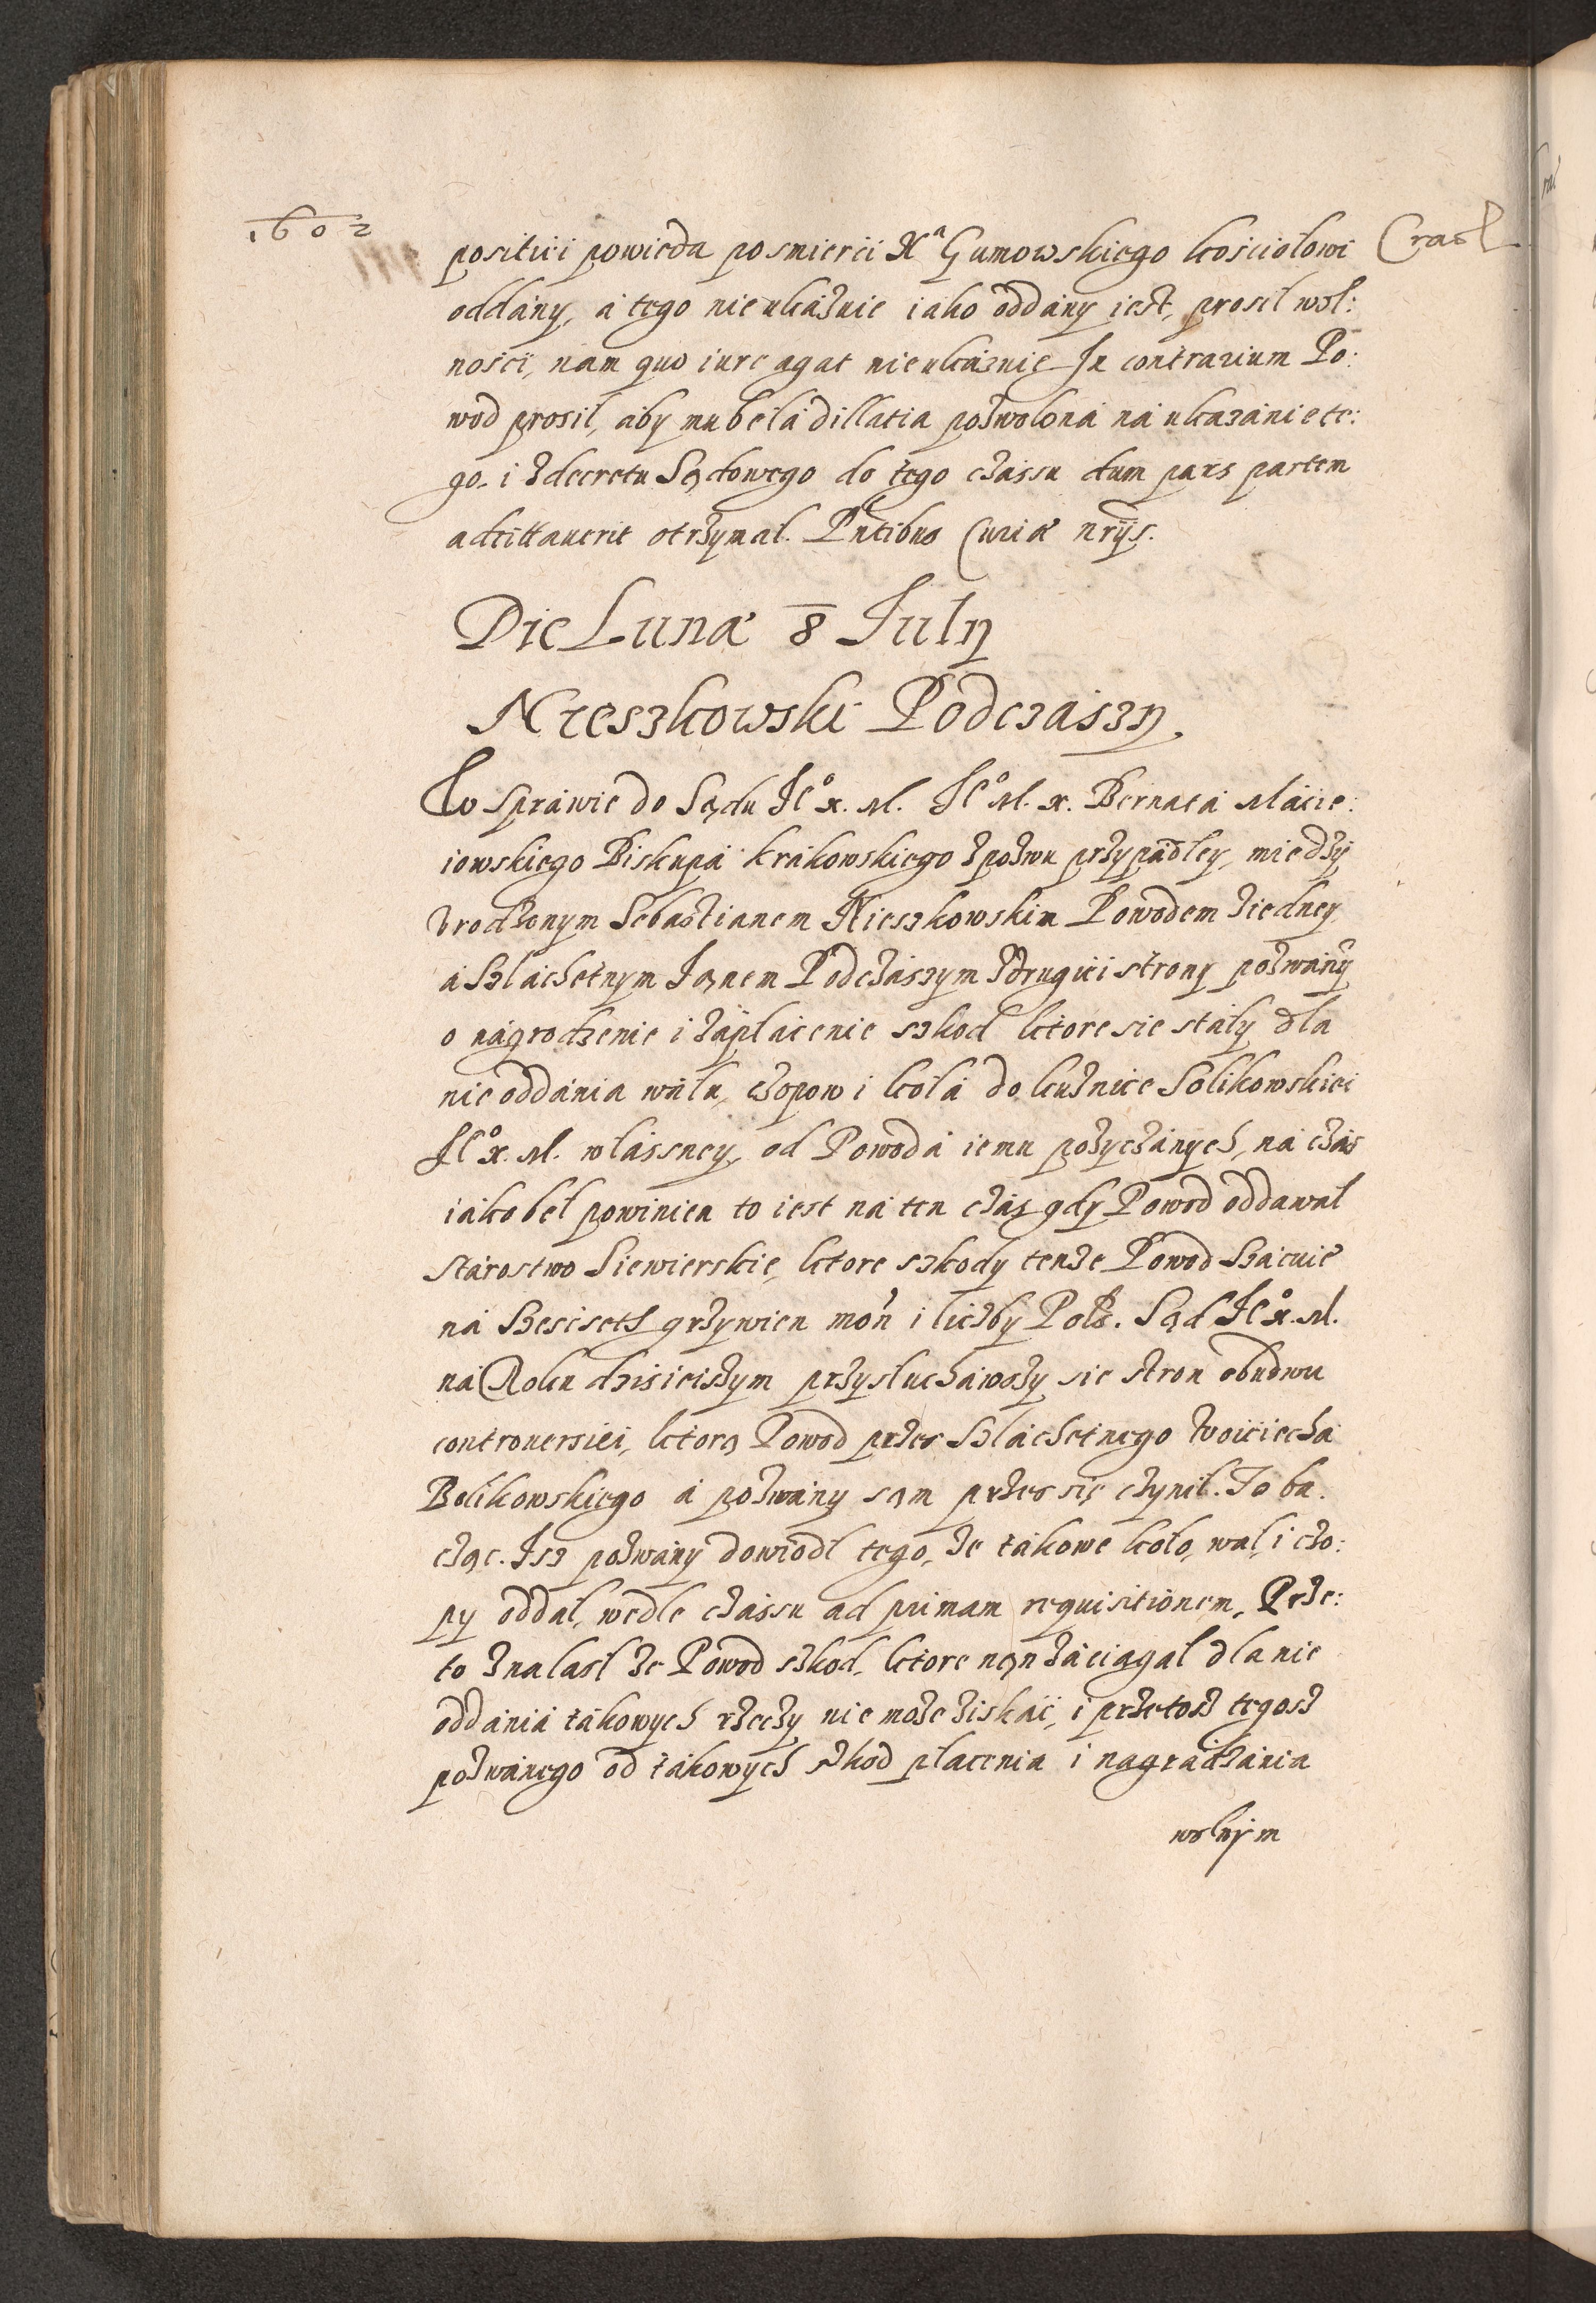 1602
Crast
positiei powieda po smierci Xa Gumowskiego kościołowi
oddány, á tego nie ukázuie iako oddány iest, prosil wol:
nosci, nam quo iure agat nie ukázuie In contrarium Po:
wod prosil, aby mu belá dillatia pozwoloná ná ukazánie te:
go. i z decretu Sądowego do tego czássu dum pars partem
adcittauerit otrzymal. Pntibus Curiæ nrijs.
Die Lunæ 8 July
Nieszkowski Podczászy.
W Spráwie do Sądu Jeo x. M. Jeo M. x. Bernatá Macie:
iowskiego Biskupá krákowskiego z pozwu przypádley, miedzy
Vrodzonym Sebastianem Nieszkowskim Powodem z iedney
á Szláchetnym Janem Podczászym z drugiei strony pozwány
o nágrodzenie i zápłácenie szkod ktore sie stáły dla
nie oddánia wału, czopow i kołá do kuznice Solikowskiei
Jeo x. M. włássney, od Powodá iemu pozyczánych, ná czás
iáko bel powinien to iest ná ten czás gdy Powod oddawał
stárostwo Siewierskie, ktore szkody tenze Powod Szácuie
ná Szescset grzywien mon i liczby Pols. Sąd Jeo x. M.
ná Roku dzisieiszym przysłuchawszy sie stron obudwu
controuersiei, ktorą Powod przes Szláchetnego Woiciecha
Bolikowskiego á pozwány sąm przes się czynił. To ba.
cząc. Isz pozwány dowiodl tego, ze tákowe koło, wał, i czo:
py oddal, wedle czássu ad primam requisitionem, Prze:
to znalasl ze Powod szkod, ktore nąn záciągal dla nie
oddániá tákowych rzeczy nie moze ziskác, i przetosz tegosz
pozwánego od tákowych szkod płacenia i nagradzánia
wolnym